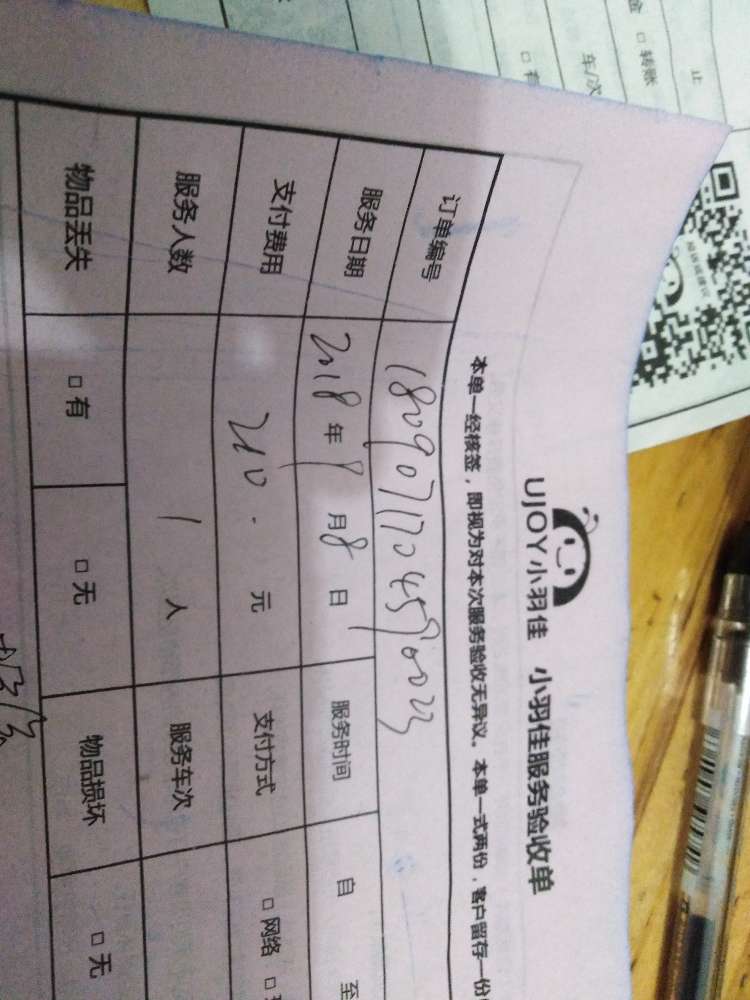 止
金 □ 转账
车/次
UJOY小羽佳 小羽佳服务验收单
本单一经核签，即视为对本次服务验收无异议。本单一式两份，客户留存一份
订单编号 1809071704590023
服务日期 2018年9月8日 服务时间 自 至
支付费用 210.元 支付方式 □ 网络 □
服务人数 1人 服务车次
物品丢失 □ 有 □ 无 物品损坏 □ 无